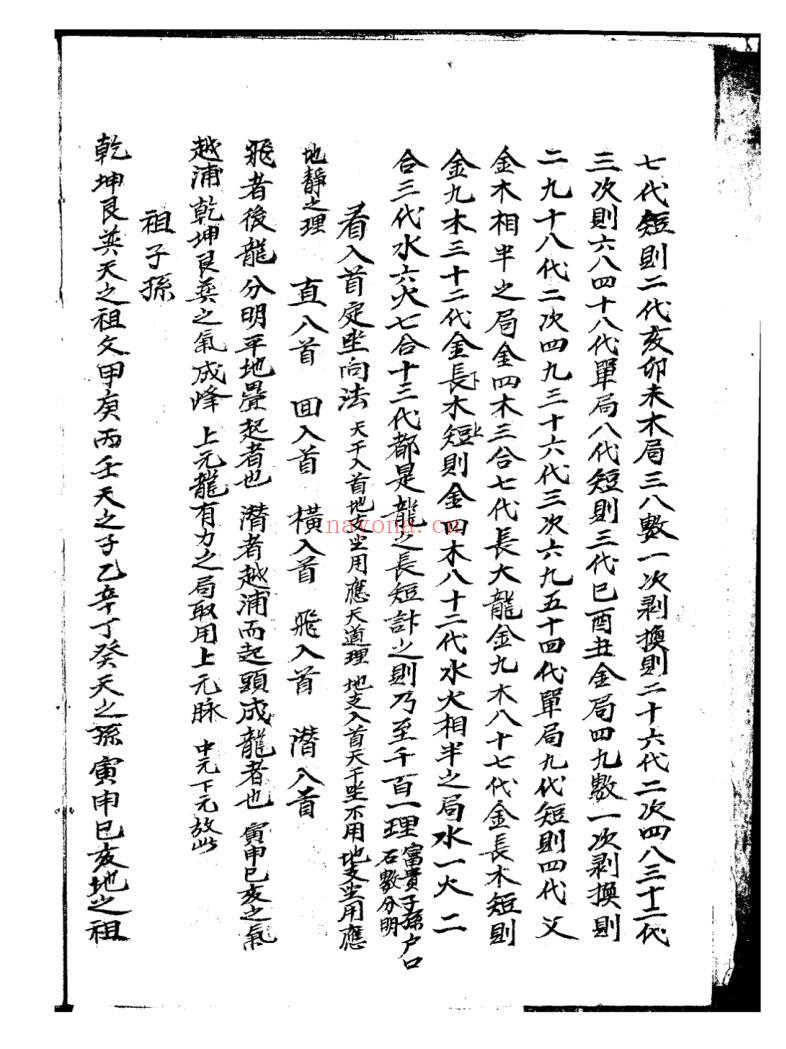 七代短則二代亥卯未木局三八數一次剥換則二十六代二次四八三十二代
三次則六八四十八代單局八代短則三代巳酉丑金局四九數一次剥換則
二九十八代二次四九三十六代三次六九五十四代單局九代短則四代又
金木相半之局金四木三合七代長大龍金九木八十七代金長木短則
金九木三十二代金長木短則金四木八十二代水火相半之局水一火二
合三代水六火七合十三代都是龍之長短計之則乃至千百一理富貴子孫戶口
石數分明
看入首定坐向法 天干入首地支坐用應天道理 地支入首天干坐不用地支坐用應
地靜之理 直入首 回入首 橫入首 飛入首 潛入首
飛者後龍分明平地疊起者也 潛者越浦而起頭成龍者也 寅申巳亥之氣
越浦乾坤艮巽之氣成峰 上元龍有力之局取用上元脉 中元下元放此
祖子孫
乾坤艮巽天之祖 甲庚丙壬天之子乙辛丁癸天之孫寅申巳亥地之祖
nayona.cn